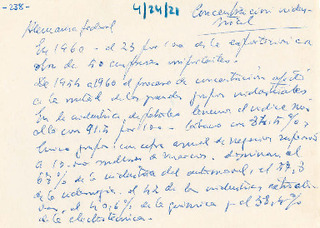 -238-
4/24/21
Concentración indus-
trial
Alemania federal
En 1960 - el 23 por 100 de la exportación era
obra de 50 empresas importantes.
De 1954 a 1960 el proceso de concentración afectó
a la mitad de los grandes grupos industriales
En la industria del petróleo tenemos el índice más
alto con 91.5 por 100. - tabaco con
cinco grupos: con cifra anual de negocios superior
a millones de marcos. dominan el
67% de la industria del automóvil, el 37,3
de la siderurgia, el 42 de las industrias
el 40,6% de la química y el 38,4%
de la electrotécnica.